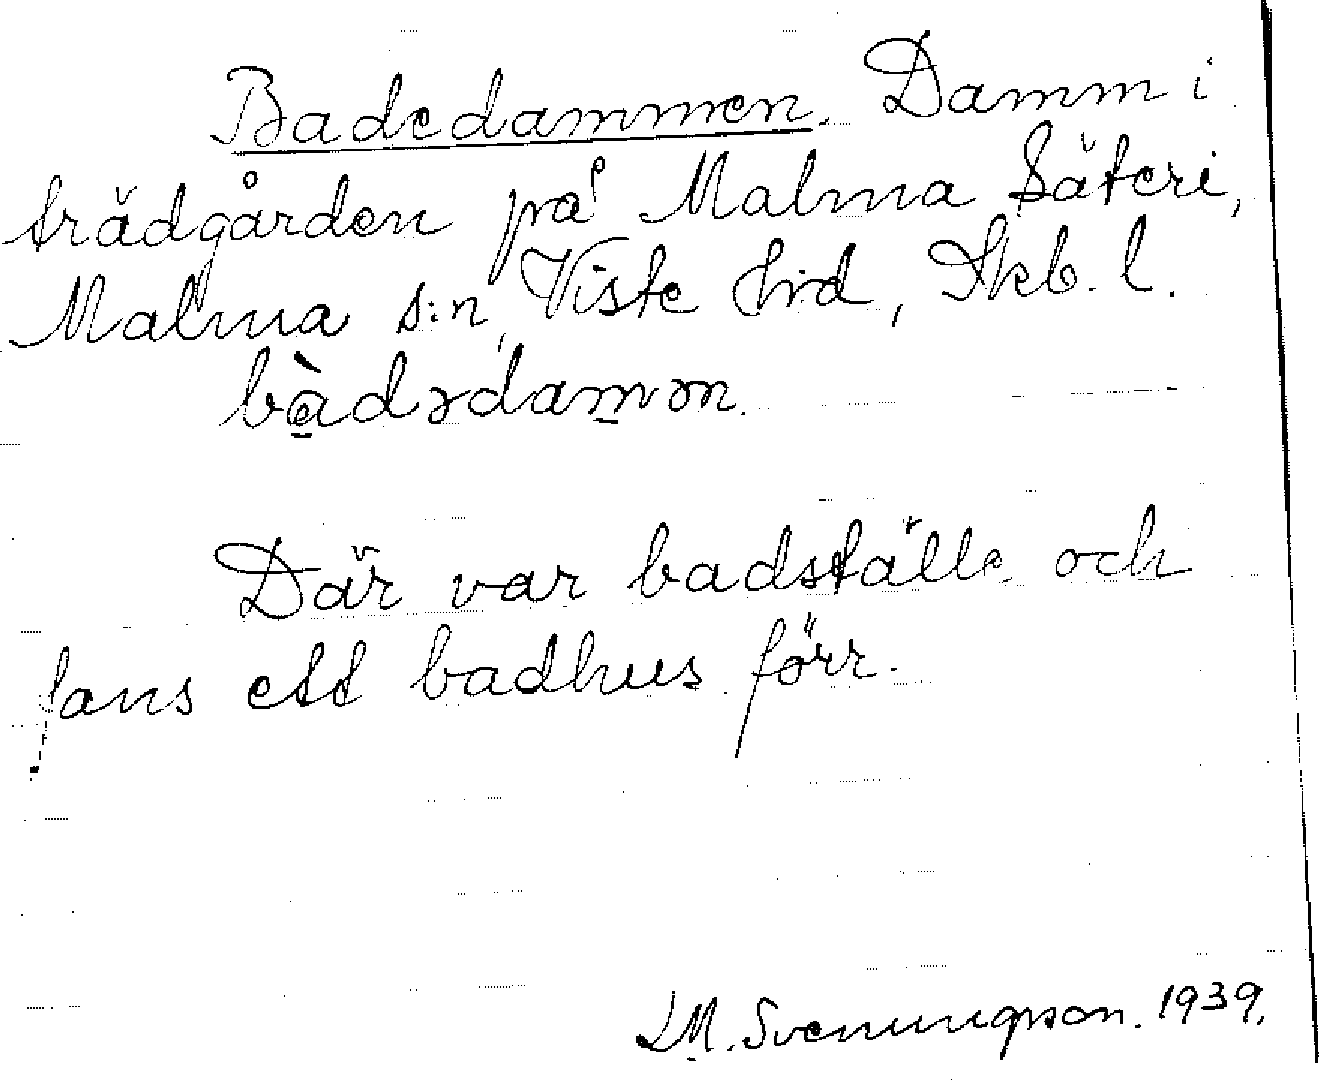 Badedammen. Damm i
trädgården på Malma Säteri,
Malma s:n, Viste hrd, Skb. l.
bàdədamən.
Där var badställe och
fans ett badhus förr.
L.M. Svenungsson. 1939.